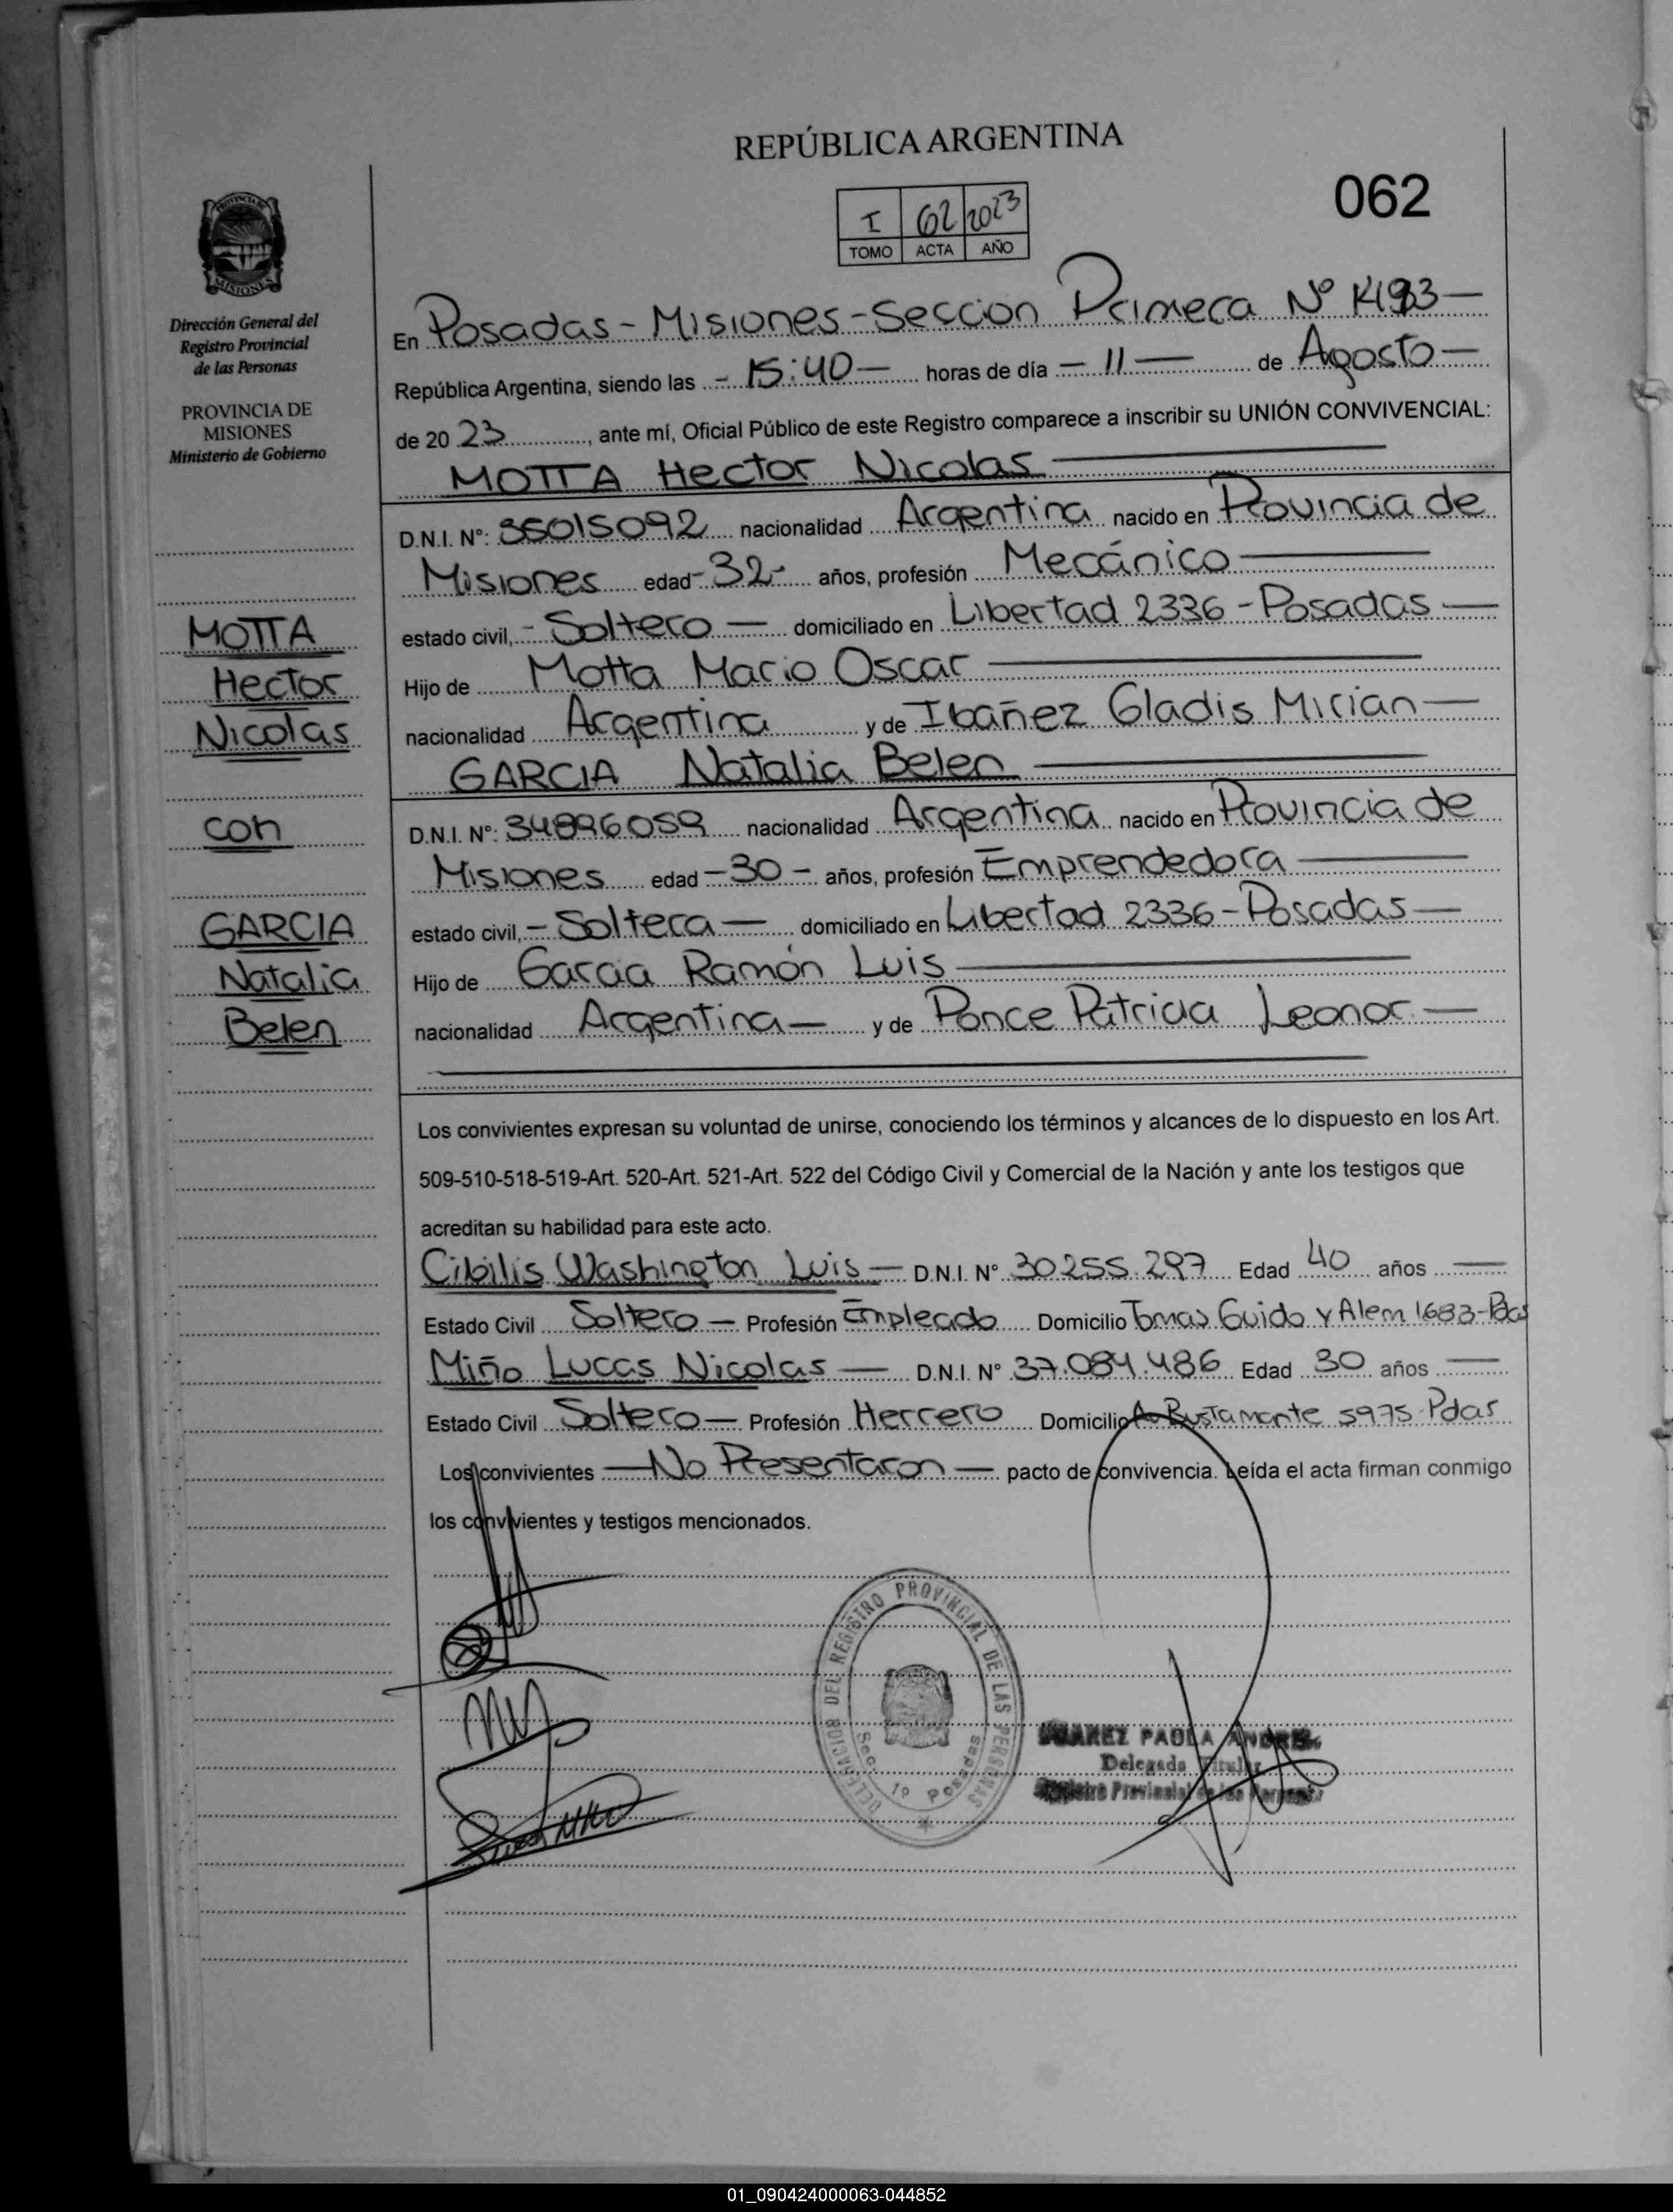 REPÚBLICA ARGENTINA
062
I 62 2023
TOMO ACTA AÑO
PROVINCIA DE
MISIONES
Dirección General del
Registro Provincial
de las Personas
PROVINCIA DE
MISIONES
Ministerio de Gobierno
En Posadas - Misiones - Seccion Primera Nº
República Argentina, siendo las - 15:40 - horas de día - 11 - de Agosto -
de 20 23, ante mí, Oficial Público de este Registro comparece a inscribir su UNIÓN CONVIVENCIAL:
MOTTA Hector Nicolas
D.N.I. Nº: 35015092 nacionalidad Argentina nacido en Provincia de
Misiones edad - 32 - años, profesión Mecánico
estado civil, - Soltero - domiciliado en Libertad 2336 - Posadas -
Hijo de Motta Mario Oscar
nacionalidad Argentina y de Ibañez Gladis Mirian -
GARCIA Natalia Belen
D.N.I. Nº: 34896059 nacionalidad Argentina nacido en Provincia de
Misiones edad - 30 - años, profesión Emprendedora
estado civil, - Soltera - domiciliado en Libertad 2336 - Posadas -
Hijo de Garcia Ramón Luis
nacionalidad Argentina - y de Ponce Patricia Leonor -
MOTTA
Hector
Nicolas
con
GARCIA
Natalia
Belen
Los convivientes expresan su voluntad de unirse, conociendo los términos y alcances de lo dispuesto en los Art.
509-510-518-519-Art. 520-Art. 521-Art. 522 del Código Civil y Comercial de la Nación y ante los testigos que
acreditan su habilidad para este acto.
Cibilis Washington Luis - D.N.I. Nº 30.255.297 Edad 40 años -
Estado Civil Soltero - Profesión Empleado Domicilio Tomas Guido y Alem 1683-Pdas
Miño Lucas Nicolas - D.N.I. Nº 37.084.486 Edad 30 años -
Estado Civil Soltero - Profesión Herrero Domicilio Av Bustamante 5975-Pdas
Los convivientes - No Presentaron - pacto de convivencia. Leída el acta firman conmigo
los convivientes y testigos mencionados.
DELEGACION DEL REGISTRO PROVINCIAL DE LAS PERSONAS
Sec. 1º Posadas
PAOLA
Delegada Titular
Registro Provincial de las Personas
01_090424000063-044852